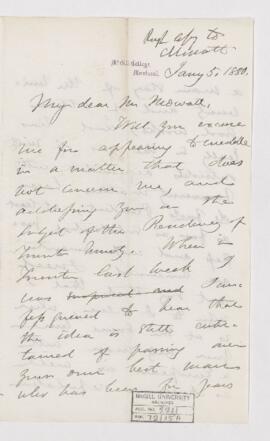 Ruf copy to
McGill College
Montreal.
Jany 5, 1880.
My dear Mr
Will you excuse
me for appearing to meddle
in a matter that does
not concern me, and
addressing you on the
subject of the Presidency of
When in
last week I
was surprised and I con-
fess grieved to hear that
the idea is still enter-
tained of passing over
your own best man
who has been for years
McGILL UNIVERSITY
ARCHIVES
ACC. NO.
REF.